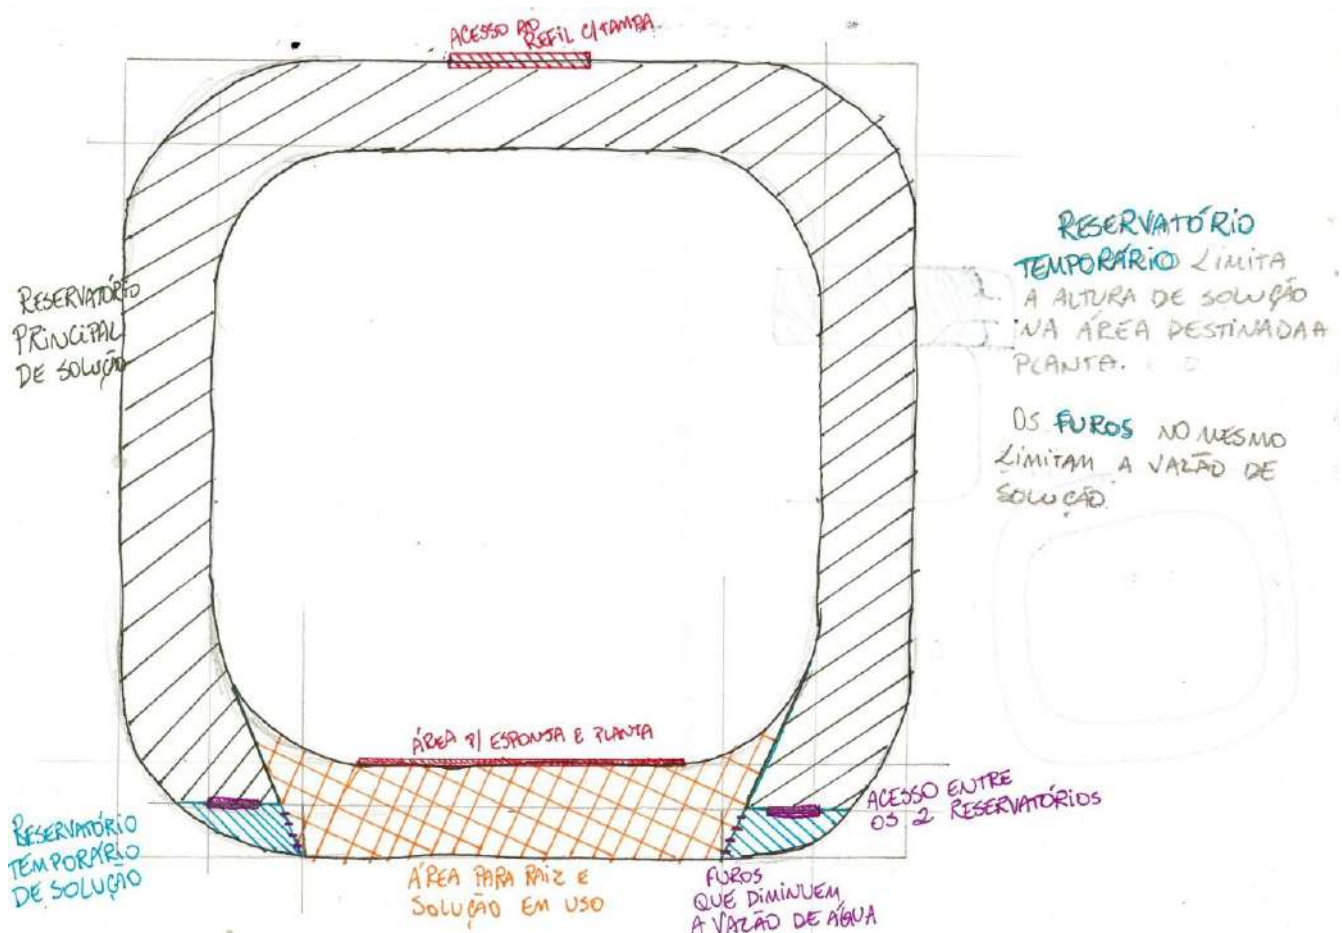 ACESSO AO
REFIL C/TAMPA
RESERVATÓRIO
PRINCIPAL
DE SOLUÇÃO
RESERVATÓRIO
TEMPORÁRIO LIMITA
A ALTURA DE SOLUÇÃO
NA ÁREA DESTINADA A
PLANTA.
OS FUROS NO MESMO
LIMITAM A VAZÃO DE
SOLUÇÃO.
ÁREA P/ ESPONJA E PLANTA
ACESSO ENTRE
OS 2 RESERVATÓRIOS
RESERVATÓRIO
TEMPORÁRIO
DE SOLUÇÃO
ÁREA PARA RAIZ E
SOLUÇÃO EM USO
FUROS
QUE DIMINUEM
A VAZÃO DE ÁGUA